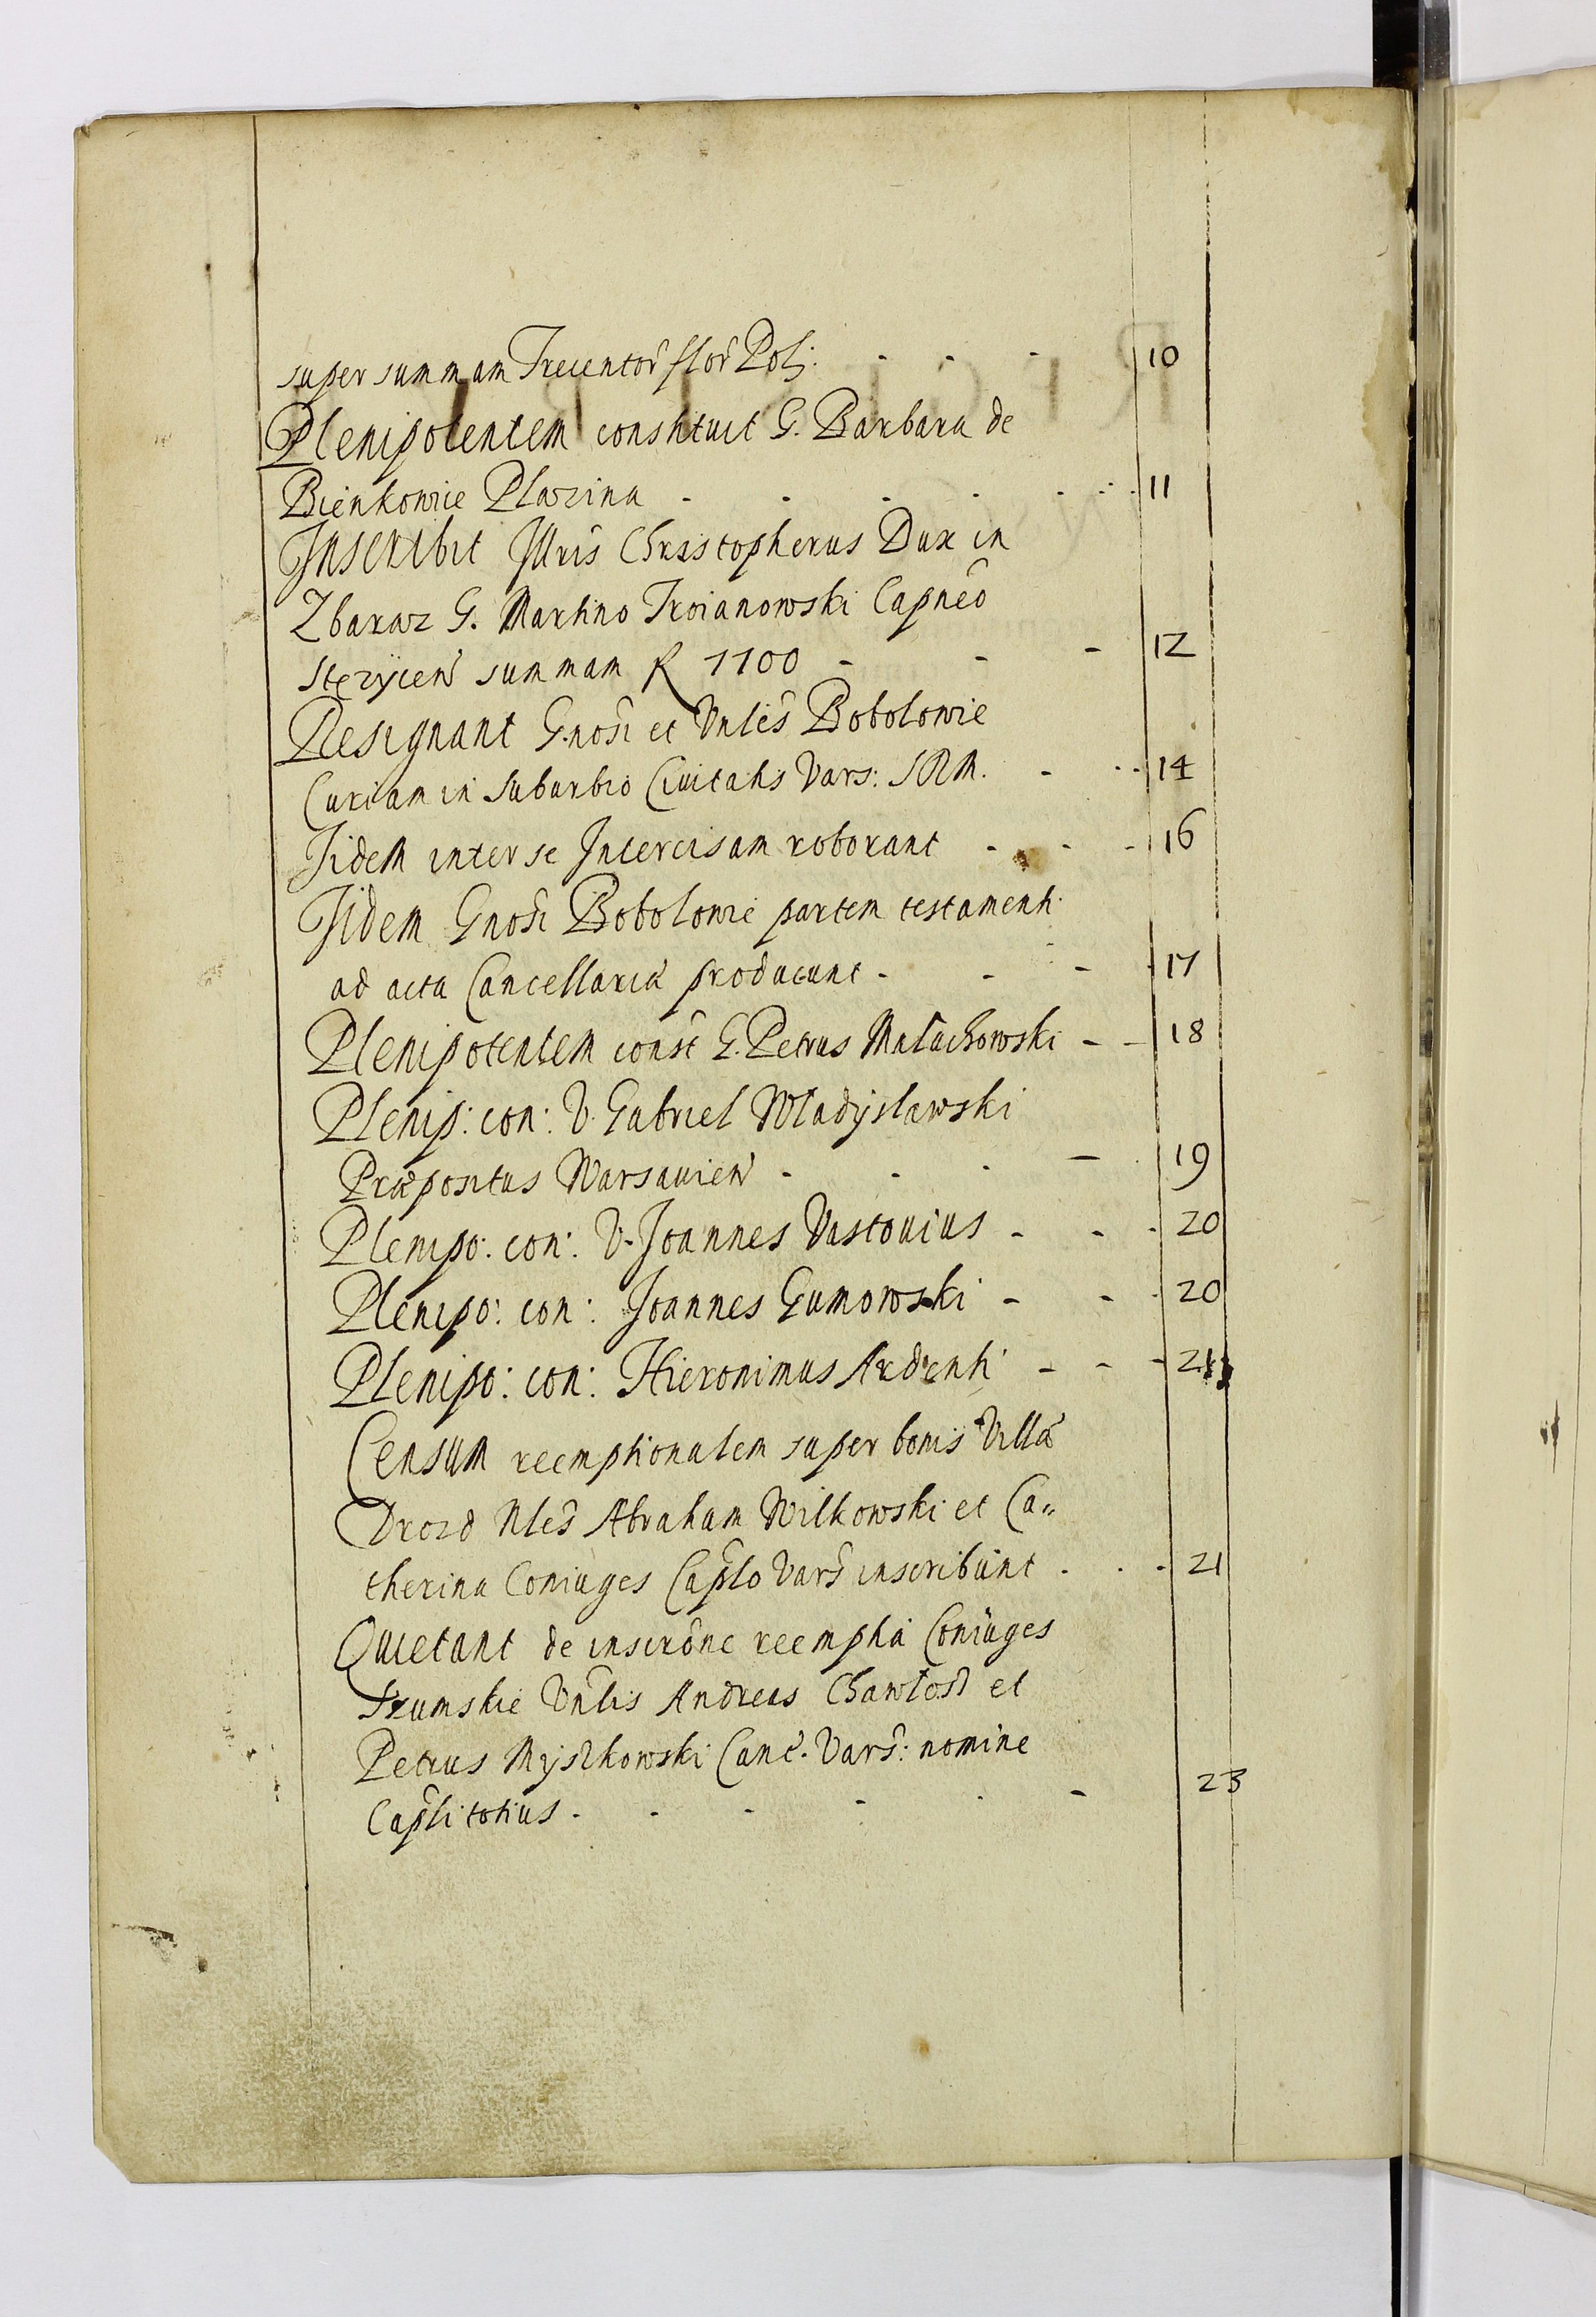 super summam Trecentor̃ flor̃ Pol: - - - 10
Plenipotentem constituit G. Barbara de
Bienkowie Plazina - - - - - - 11
Inscribit Illris Christopherus Dux in
Zbaraz G. Martino Troianowski Capneõ
Stezycen̄ summam R 1100 - - - 12
Resignant G.nosi et Vnles Bobolowie
Curiam in suburbio Ciuitatis Vars: SRM. - - 14
Iidem inter se Intercisam roborant - - - 16
Iidem Gnosi Bobolowie partem testamenti
ad acta Cancellariæ producunt - - - 17
Plenipotentem const̃ G. Petrus Małachowski - - 18
Plenip: con: V. Gabriel Władÿsławski
Præpositus Warsauien̄ - - - - 19
Plenipo: con: V. Joannes Vastouius - - - 20
Plenipo: con: Joannes Gumowski - - - 20
Plenipo: con: Hieronimus Ardenti - - - 21
Censum reemptionalem super bonis Villæ
Drozd Nles̃ Abraham Wilkowski et Ca=
therina Coniuges Caplo Vars̃ inscribunt - - - 21
Quietant de inscrõne reempta Coniuges
Vnlis Andreas Chawłosz et
Petrus Myszkowski Canc̃. Vars̃: nomine
Capli totius - - - - - - 23